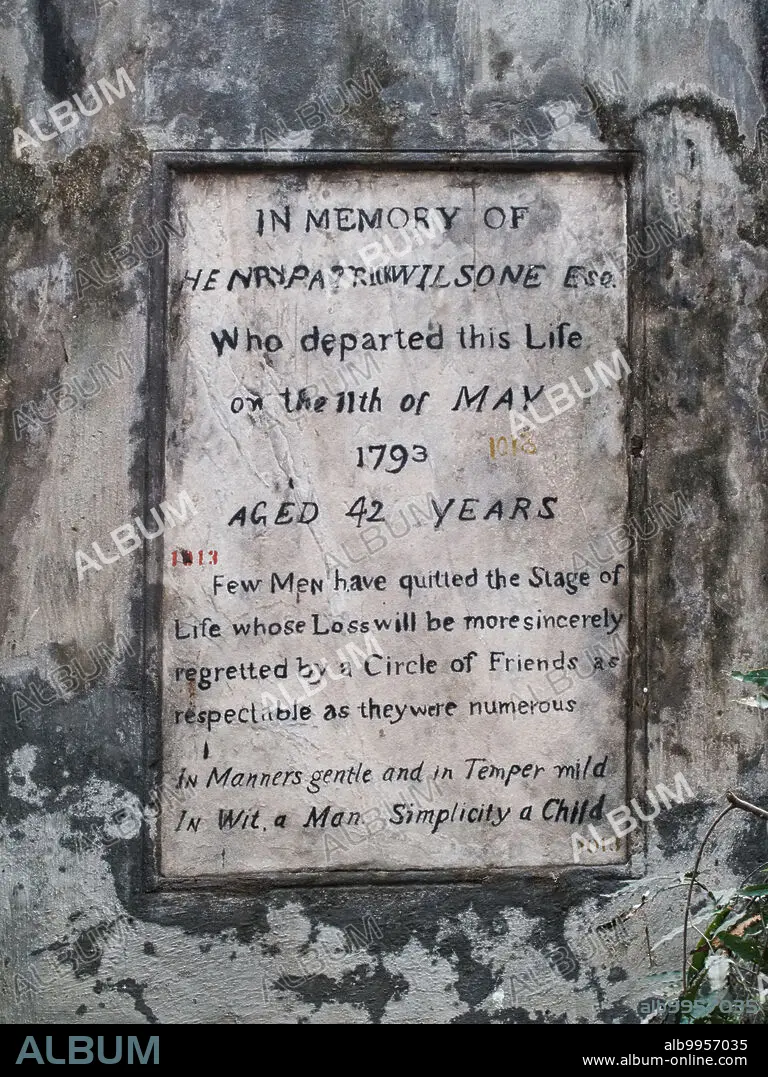 IN MEMORY OF
HENRY PATRICK WILSONE Esq.
Who departed this Life
on the 11th of MAY
1793 1013
AGED 42 YEARS
1013
Few Men have quitted the Stage of
Life whose Loss will be more sincerely
regretted by a Circle of Friends as
respectable as they were numerous
In Manners gentle and in Temper mild
In Wit, a Man Simplicity a Child
ALBUM
alb9957035
ALBUM
alb9957035
www.album-online.com